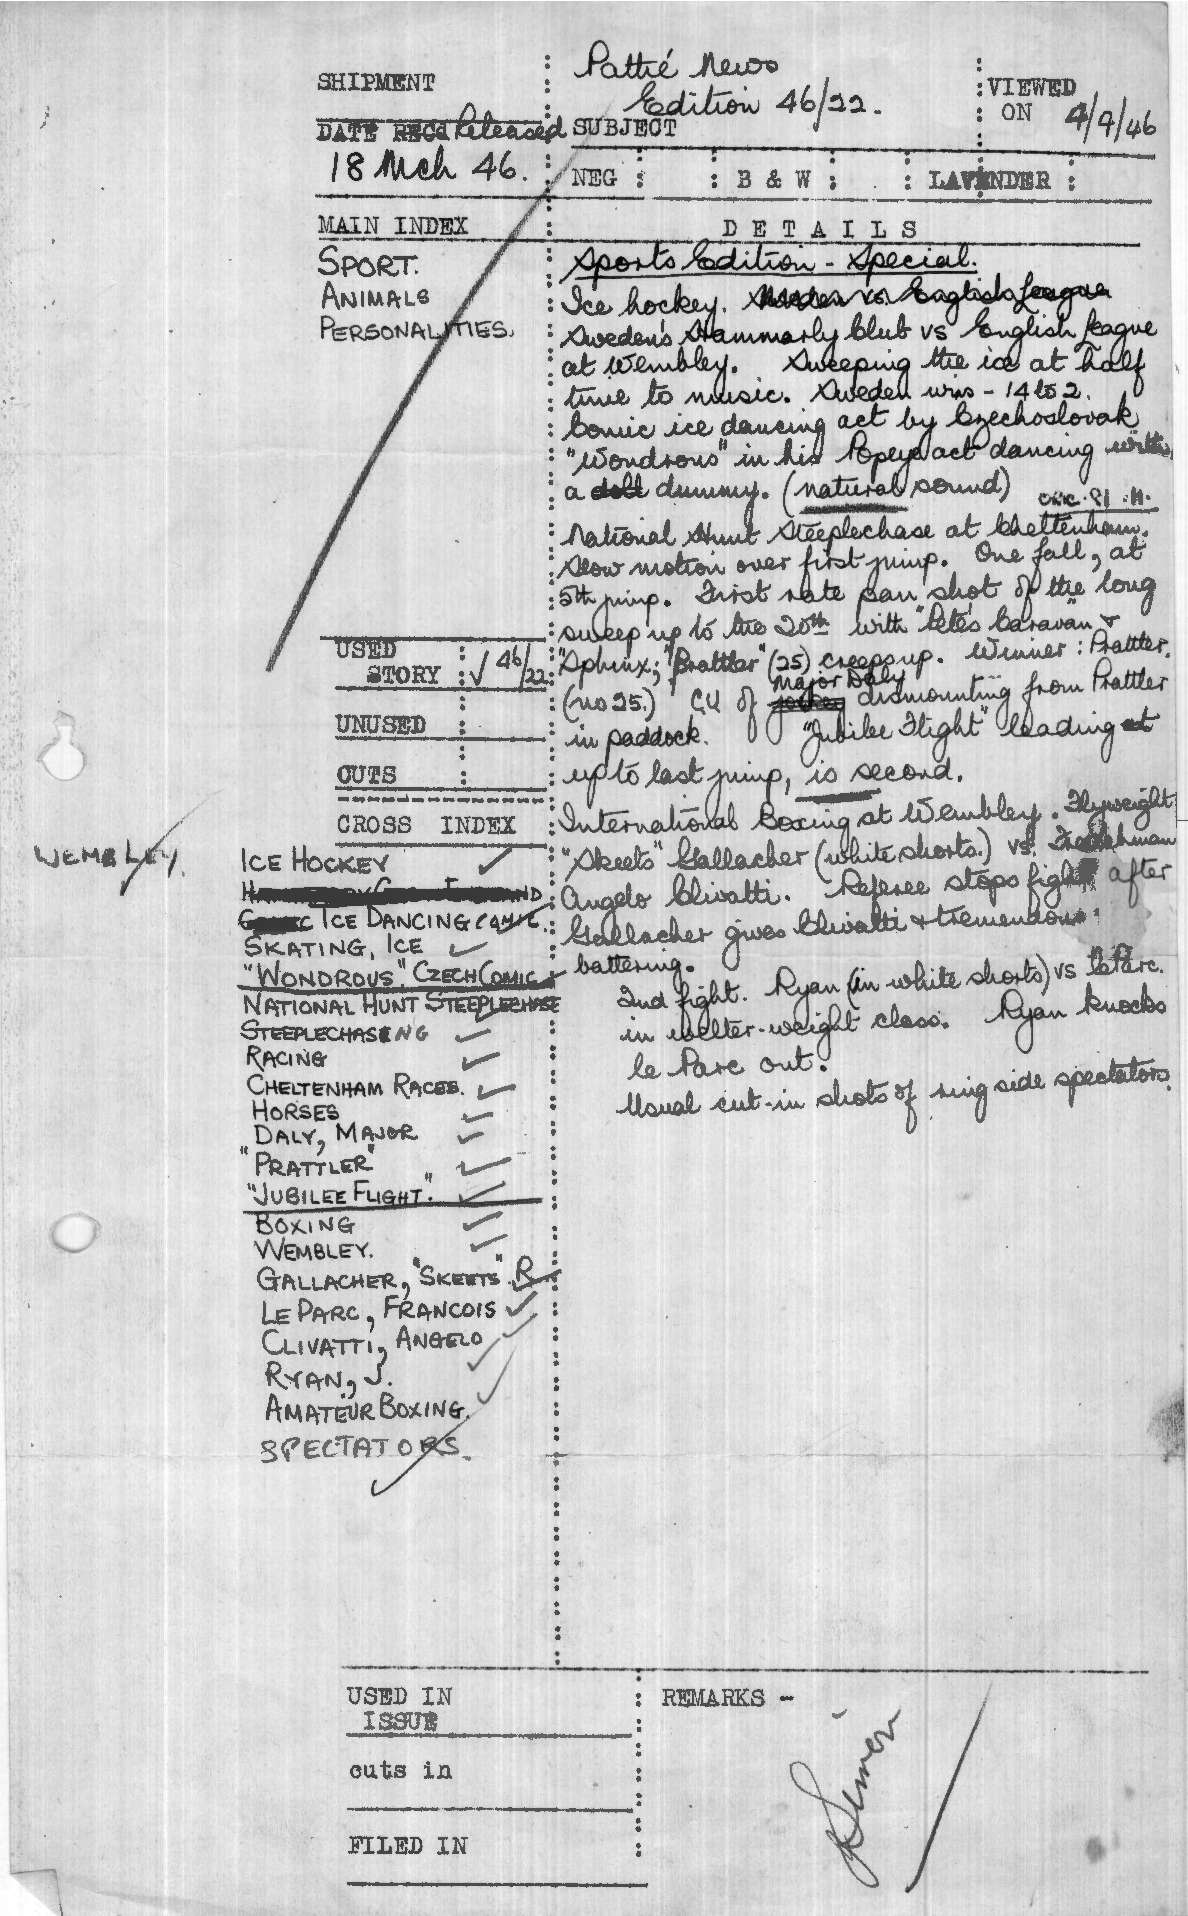 Pathé News
SHIPMENT
Edition 46/22.
VIEWED
ON 4/9/46
DATE REC'd Released
SUBJECT
18 Mch 46.
NEG : : B & W : : LAVENDER :
MAIN INDEX
DETAILS
SPORT.
ANIMALS
PERSONALITIES.
Sports Edition - Special.
Ice hockey. Sweden vs. English League
Sweden's Hammarly Club vs English League
at Wembley. Sweeping the ice at half
time to music. Sweden wins - 14 to 2.
Comic ice dancing act by Czechoslovak
"Wondrous" in his Popeye act dancing with
a doll dummy. (natural sound)
National Hunt Steeplechase at Cheltenham.
Slow motion over first jump. One fall, at
5th jump. First rate pan shot of the long
sweep up to the 20th with "Pete's Caravan" &
"Sphinx"; "Prattler" (25) creeps up. Winner: Prattler.
(no 25.) CU of jockey Major Daly dismounting from Prattler
in paddock. "Jubilee Flight" leading at
up to last jump, is second.
International Boxing at Wembley. Flyweight
"Skeets" Gallacher (white shorts.) vs.
Angelo Clivatti. Referee stops fight after
Gallacher gives Clivatti tremendous
battering.
2nd fight. Ryan (in white shorts) vs le Parc.
in welter-weight class. Ryan knocks
le Parc out.
Usual cut-in shots of ring side spectators.
USED
STORY : √ 46/22
UNUSED :
CUTS :
CROSS INDEX
WEMBLEY.
ICE HOCKEY
ICE DANCING COMIC.
SKATING, ICE
"WONDROUS". CZECH COMIC
NATIONAL HUNT STEEPLECHASE
STEEPLECHASING
RACING
CHELTENHAM RACES.
HORSES
DALY, MAJOR
"PRATTLER"
"JUBILEE FLIGHT".
BOXING
WEMBLEY.
GALLACHER, "SKEETS". R
LE PARC, FRANCOIS
CLIVATTI, ANGELO
RYAN, J.
AMATEUR BOXING.
SPECTATORS.
USED IN
ISSUE
REMARKS -
cuts in
FILED IN